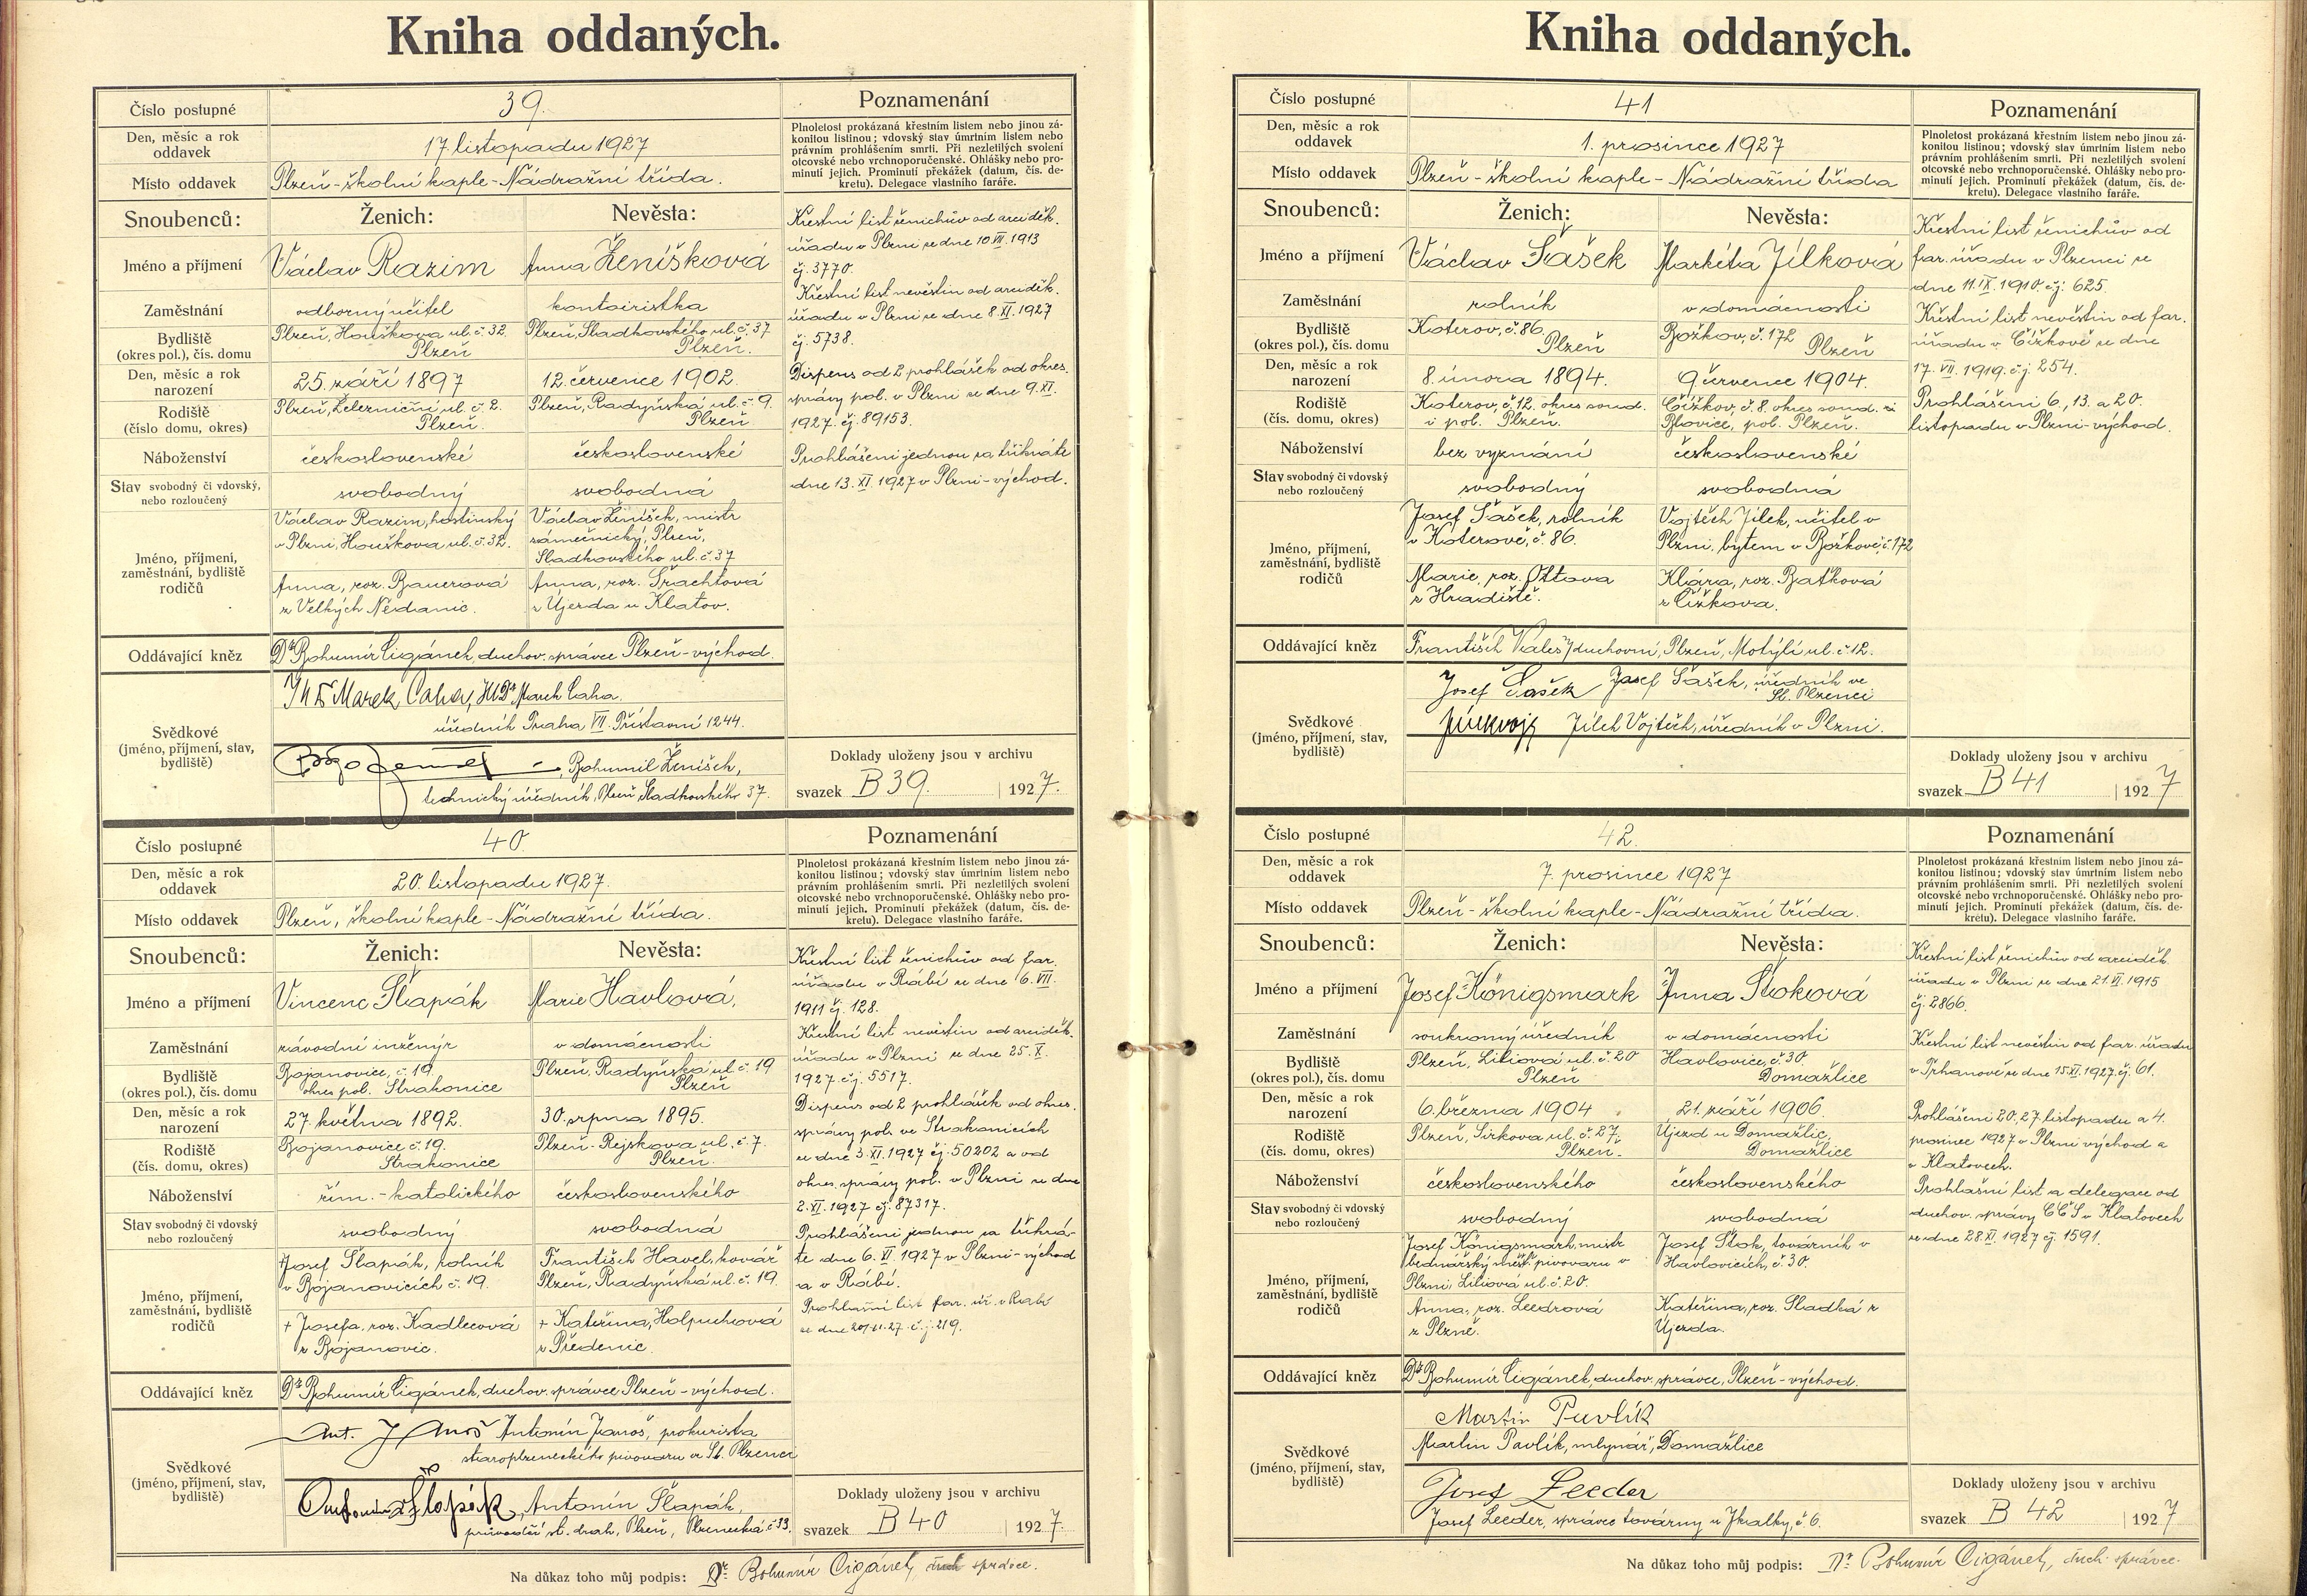 Kniha oddaných.
Číslo postupné 39.
Den, měsíc a rok oddavek 17. listopadu 1927
Místo oddavek Plzeň - školní kaple - Nádražní třída.
Poznamenání
Plnoletost prokázaná křestním listem nebo jinou zá-
konitou listinou; vdovský stav úmrtním listem nebo
právním prohlášením smrti. Při nezletilých svolení
otcovské nebo vrchnoporučenské. Ohlášky nebo pro-
minutí jejich. Prominutí překážek (datum, čís. de-
kretu). Delegace vlastního faráře.
Snoubenců: Ženich: Nevěsta:
Jméno a příjmení Václav Razim Anna Ženíšková
Zaměstnání odborný učitel kontoiristka
Bydliště (okres pol.), čís. domu Plzeň, Houškova ul. č. 32. Plzeň Plzeň, Sladkovského ul. č. 37 Plzeň.
Den, měsíc a rok narození 25. září 1897 12. července 1902.
Rodiště (číslo domu, okres) Plzeň, Železniční ul. č. 2. Plzeň. Plzeň, Radyňská ul. č. 9. Plzeň
Náboženství československé československé
Stav svobodný či vdovský, nebo rozloučený svobodný svobodná
Jméno, příjmení, zaměstnání, bydliště rodičů
Václav Razim, hostinský
v Plzni, Houškova ul. č. 32.
Anna, roz. Bauerová
z Velkých Nědanic.
Václav Ženíšek, mistr
zámečnický, Plzeň,
Sladkovského ul. č. 37
Anna, roz. Šrachtová
z Újezda u Klatov.
Křestní list ženichův od arciděk.
úřadu v Plzni ze dne 10. VII. 1913
čj. 3770.
Křestní list nevěstin od arciděk.
úřadu v Plzni ze dne 8. XI. 1927
čj. 5738.
Dispens od 2 prohlášek od okres.
správy pol. v Plzni ze dne 9. XI.
1927. čj. 89153.
Prohlášeni jednou za třikráte
dne 13. XI. 1927 v Plzni-východ.
Oddávající kněz Dr Bohumír Cigánek, duchov. správce Plzeň-východ.
Svědkové (jméno, příjmení, stav, bydliště)
Marek Caha, Marek Caha,
úředník Praha VII. Přístavní 1244.
Bohumil Ženíšek,
technický úředník, Plzeň, Sladkovského 37.
Doklady uloženy jsou v archivu
svazek B 39. 1927.
Číslo postupné 40.
Den, měsíc a rok oddavek 20. listopadu 1927.
Místo oddavek Plzeň, školní kaple - Nádražní třída.
Poznamenání
Plnoletost prokázaná křestním listem nebo jinou zá-
konitou listinou; vdovský stav úmrtním listem nebo
právním prohlášením smrti. Při nezletilých svolení
otcovské nebo vrchnoporučenské. Ohlášky nebo pro-
minutí jejich. Prominutí překážek (datum, čís. de-
kretu). Delegace vlastního faráře.
Snoubenců: Ženich: Nevěsta:
Jméno a příjmení Vincenc Šlapák Marie Havlová,
Zaměstnání závodní inženýr v domácnosti
Bydliště (okres pol.), čís. domu Bojanovice, č. 19. okres pol. Strakonice Plzeň, Radyňská ul. č. 19 Plzeň
Den, měsíc a rok narození 27. května 1892. 30. srpna 1895.
Rodiště (čís. domu, okres) Bojanovice č. 19. Strakonice Plzeň - Rejskova ul. č. 7. Plzeň.
Náboženství řím. - katolického československého
Stav svobodný či vdovský nebo rozloučený svobodný svobodná
Jméno, příjmení, zaměstnání, bydliště rodičů
+ Josef Šlapák, rolník
v Bojanovicích č. 19.
+ Josefa, roz. Kadlecová
z Bojanovic.
František Havel, kovář
Plzeň, Radyňská ul. č. 19.
+ Kateřina, Holpuchová
z Předenic.
Křestní list ženichův od far.
úřadu v Rábí ze dne 6. VII.
1911 čj. 128.
Křestní list nevěstin od arciděk.
úřadu v Plzni ze dne 25. X.
1927. čj. 5517.
Dispens od 2 prohlášek od okres.
správy pol. ve Strakonicích
ze dne 3. XI. 1927 čj. 50202 a od
okres. správy pol. v Plzni ze dne
2. XI. 1927 čj. 87317.
Prohlášeni jednou za třikrá-
te dne 6. XI. 1927 v Plzni-východ
a v Rábí.
Prohlašní list far. úř. v Rabí
ze dne 20/11.27. č.j. 219.
Oddávající kněz Dr Bohumír Cigánek, duchov. správce Plzeň-východ.
Svědkové (jméno, příjmení, stav, bydliště)
Ant. Janoš Antonín Janoš, prokurista
staroplzeneckého pivovaru ve St. Plzenci
Antonín Šlapák, Antonín Šlapák,
průvodčí st. drah, Plzeň, Plzenecká č. 33.
Doklady uloženy jsou v archivu
svazek B 40 1927.
Na důkaz toho můj podpis: Dr. Bohumír Cigánek, duch správce.
Kniha oddaných.
Číslo postupné 41
Den, měsíc a rok oddavek 1. prosince 1927
Místo oddavek Plzeň - školní kaple - Nádražní třída
Poznamenání
Plnoletost prokázaná křestním listem nebo jinou zá-
konitou listinou; vdovský stav úmrtním listem nebo
právním prohlášením smrti. Při nezletilých svolení
otcovské nebo vrchnoporučenské. Ohlášky nebo pro-
minutí jejich. Prominutí překážek (datum, čís. de-
kretu). Delegace vlastního faráře.
Snoubenců: Ženich: Nevěsta:
Jméno a příjmení Václav Šašek Markéta Jílková
Zaměstnání rolník v domácnosti
Bydliště (okres pol.), čís. domu Koterov, č. 86. Plzeň Božkov, č. 172 Plzeň
Den, měsíc a rok narození 8. února 1894. 9. července 1904.
Rodiště (čís. domu, okres) Koterov, č. 12. okres soud. i pol. Plzeň. Čížkov, č. 8. okres soud. Blovice, pol. Plzeň.
Náboženství bez vyznání československé
Stav svobodný či vdovský nebo rozloučený svobodný svobodná
Jméno, příjmení, zaměstnání, bydliště rodičů
Josef Šašek, rolník
v Koterově, č. 86.
Marie, roz. Ottova
z Hradiště.
Vojtěch Jílek, učitel v
Plzni, bytem v Božkově, č. 172
Klára, roz. Baťková
z Čížkova.
Křestní list ženichův od
far. úřadu v Plzenci ze
dne 11. IX. 1910. čj. 625.
Křestní list nevěstin od far.
úřadu v Čížkově ze dne
17. VII. 1919. čj. 254.
Prohlášeni 6., 13. a 20.
listopadu v Plzni-východ.
Oddávající kněz František Valeš, duchovní, Plzeň, Motýlí ul. č. 12.
Svědkové (jméno, příjmení, stav, bydliště)
Josef Šašek Josef Šašek, úředník ve
St. Plzenci
Jílek Vojtěch, úředník v Plzni.
Doklady uloženy jsou v archivu
svazek B 41 1927
Číslo postupné 42.
Den, měsíc a rok oddavek 7. prosince 1927
Místo oddavek Plzeň - školní kaple - Nádražní třída.
Poznamenání
Plnoletost prokázaná křestním listem nebo jinou zá-
konitou listinou; vdovský stav úmrtním listem nebo
právním prohlášením smrti. Při nezletilých svolení
otcovské nebo vrchnoporučenské. Ohlášky nebo pro-
minutí jejich. Prominutí překážek (datum, čís. de-
kretu). Delegace vlastního faráře.
Snoubenců: Ženich: Nevěsta:
Jméno a příjmení Josef Königsmark Anna Štoková
Zaměstnání soukromý úředník v domácnosti
Bydliště (okres pol.), čís. domu Plzeň, Liliová ul. č. 20 Plzeň Havlovice, č. 30. Domažlice
Den, měsíc a rok narození 6. března 1904 21. září 1906.
Rodiště (čís. domu, okres) Plzeň, Sirkova ul. č. 27, Plzeň. Újezd u Domažlic, Domažlice
Náboženství československého československého
Stav svobodný či vdovský nebo rozloučený svobodný svobodná
Jméno, příjmení, zaměstnání, bydliště rodičů
Josef Königsmark, mistr
bednářský měšť. pivovaru v
Plzni, Liliová ul. č. 20.
Anna, roz. Leedrová
z Plzně.
Josef Štok, továrník v
Havlovicích, č. 30.
Kateřina, roz. Sladká z
Újezda.
Křestní list ženichův od arciděk.
úřadu v Plzni ze dne 21. VI. 1915
čj. 2866.
Křestní list nevěstin od far. úřadu
v Tphanově ze dne 15. XI. 1927. čj. 61.
Prohlášeni 20., 27. listopadu a 4.
prosince 1927 v Plzni východ a
v Klatovech.
Prohlašní list a delegace od
duchov. správy CČS v Klatovech
ze dne 28. XI. 1927 čj. 1591.
Oddávající kněz Dr Bohumír Cigánek, duchov. správce, Plzeň-východ.
Svědkové (jméno, příjmení, stav, bydliště)
Martin Pavlík
Martin Pavlík, mlynář, Domažlice
Josef Leeder
Josef Leeder, správce továrny u Jkalky, č. 6.
Doklady uloženy jsou v archivu
svazek B 42 1927
Na důkaz toho můj podpis: Dr. Bohumír Cigánek, duch. správce.